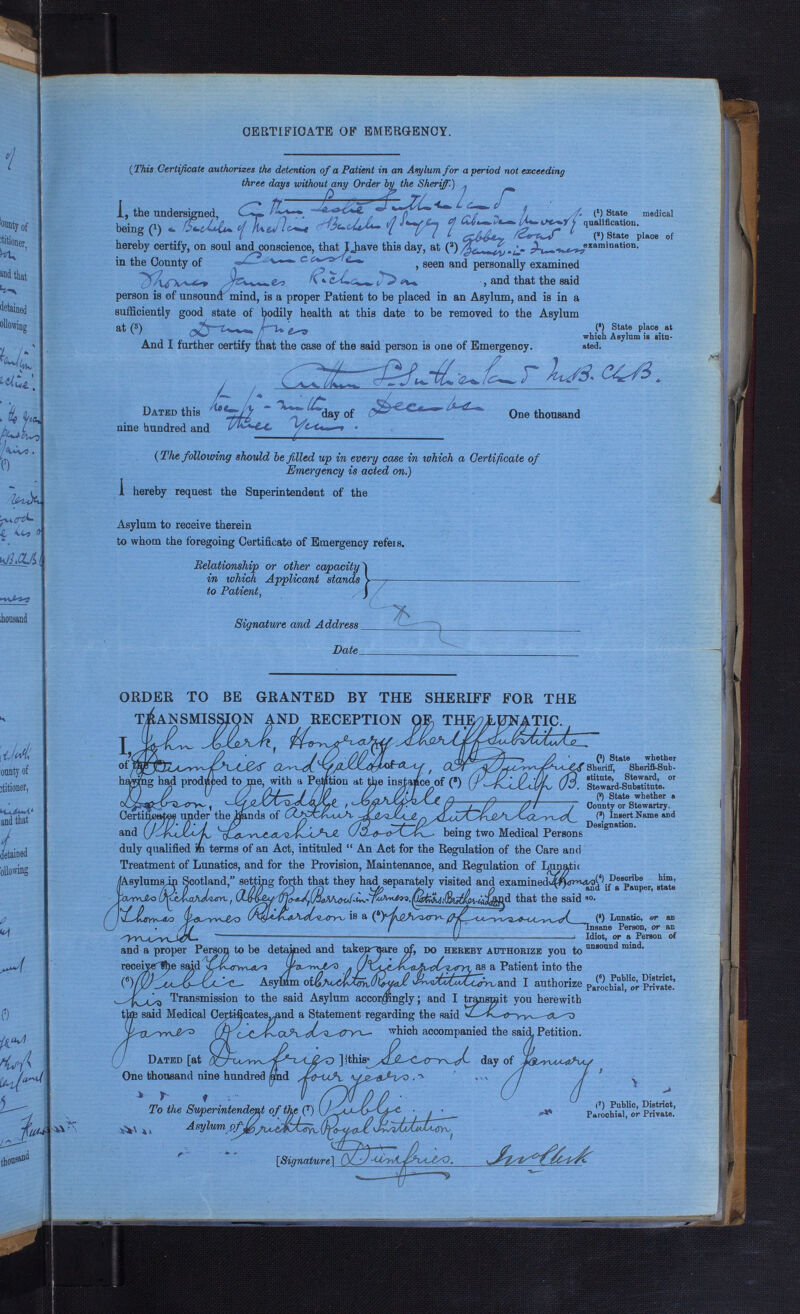 CERTIFICATE OF EMERGENCY.
(This Certificate authorizes the detention of a Patient in an Asylum for a period not exceeding
three days without any Order by the Sheriff.)
I, the undersigned, Arthur Leslie Sutherland
being (1) a Bachelor of Medicine & Bachelor of Surgery of Aberdeen University
(1) State medical
qualification.
hereby certify, on soul and conscience, that I have this day, at (2) Abbey Road Barrow-in-Furness
(2) State place of
examination.
in the County of Lancaster, seen and personally examined
Thomas James Richardson, and that the said
person is of unsound mind, is a proper Patient to be placed in an Asylum, and is in a
sufficiently good state of bodily health at this date to be removed to the Asylum
at (3) Dumfries
(3) State place at
which Asylum is situ-
ated.
And I further certify that the case of the said person is one of Emergency.
Arthur L. Sutherland M.B. Ch.B.
DATED this twenty-ninth day of December One thousand
nine hundred and three years.
(The following should be filled up in every case in which a Certificate of
Emergency is acted on.)
I hereby request the Superintendent of the
Asylum to receive therein
to whom the foregoing Certificate of Emergency refers.
Relationship or other capacity
in which Applicant stands
to Patient,
Signature and Address
Date
ORDER TO BE GRANTED BY THE SHERIFF FOR THE
TRANSMISSION AND RECEPTION OF THE LUNATIC.
I, John Clerk, Honorary Sheriff Substitute
of Dumfries and Galloway, at Dumfries
(1) State whether
Sheriff, Sheriff-Sub-
stitute, Steward, or
Steward-Substitute.
having had produced to me, with a Petition at the instance of (3) Philip B.
Dobson, Geltsdale, Carlisle
(2) State whether a
County or Stewartry.
Certificates under the hands of Arthur Leslie Sutherland
(3) Insert Name and
Designation.
and Philip Lancashire Booth being two Medical Persons
duly qualified in terms of an Act, intituled "An Act for the Regulation of the Care and
Treatment of Lunatics, and for the Provision, Maintenance, and Regulation of Lunatic
Asylums in Scotland," setting forth that they had separately visited and examined (4) Thomas
(4) Describe him,
and if a Pauper, state
so.
James Richardson, Abbey Road, Barrow-in-Furness, and that the said
Thomas James Richardson is a (5) person of unsound
mind
(5) Lunatic, or an
Insane Person, or an
Idiot, or a Person of
unsound mind.
and a proper Person to be detained and taken care of, DO HEREBY AUTHORIZE you to
receive the said Thomas James Richardson as a Patient into the
(6) Public Asylum of Crichton Royal Institution and I authorize
(6) Public, District,
Parochial, or Private.
his Transmission to the said Asylum accordingly; and I transmit you herewith
the said Medical Certificates, and a Statement regarding the said Thomas
James Richardson which accompanied the said Petition.
DATED [at Dumfries] this Second day of January,
One thousand nine hundred and four years.
To the Superintendent of the (7) Public
(7) Public, District,
Parochial, or Private.
Asylum of Crichton Royal Institution,
Dumfries.
[Signature] Jno Clerk